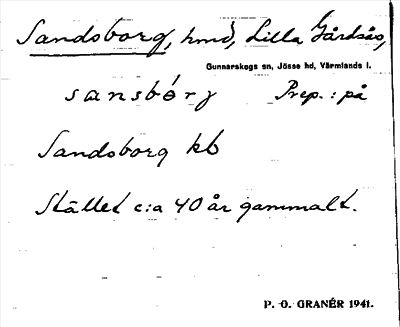 Sandsborg, hmd, Lilla Gårdsås,
Gunnarskogs sn, Jösse hd, Värmlands l.
sansbórj Prep.: på
Sandsborg kb
Stället c:a 40 år gammalt.
P. O. GRANÉR 1941.